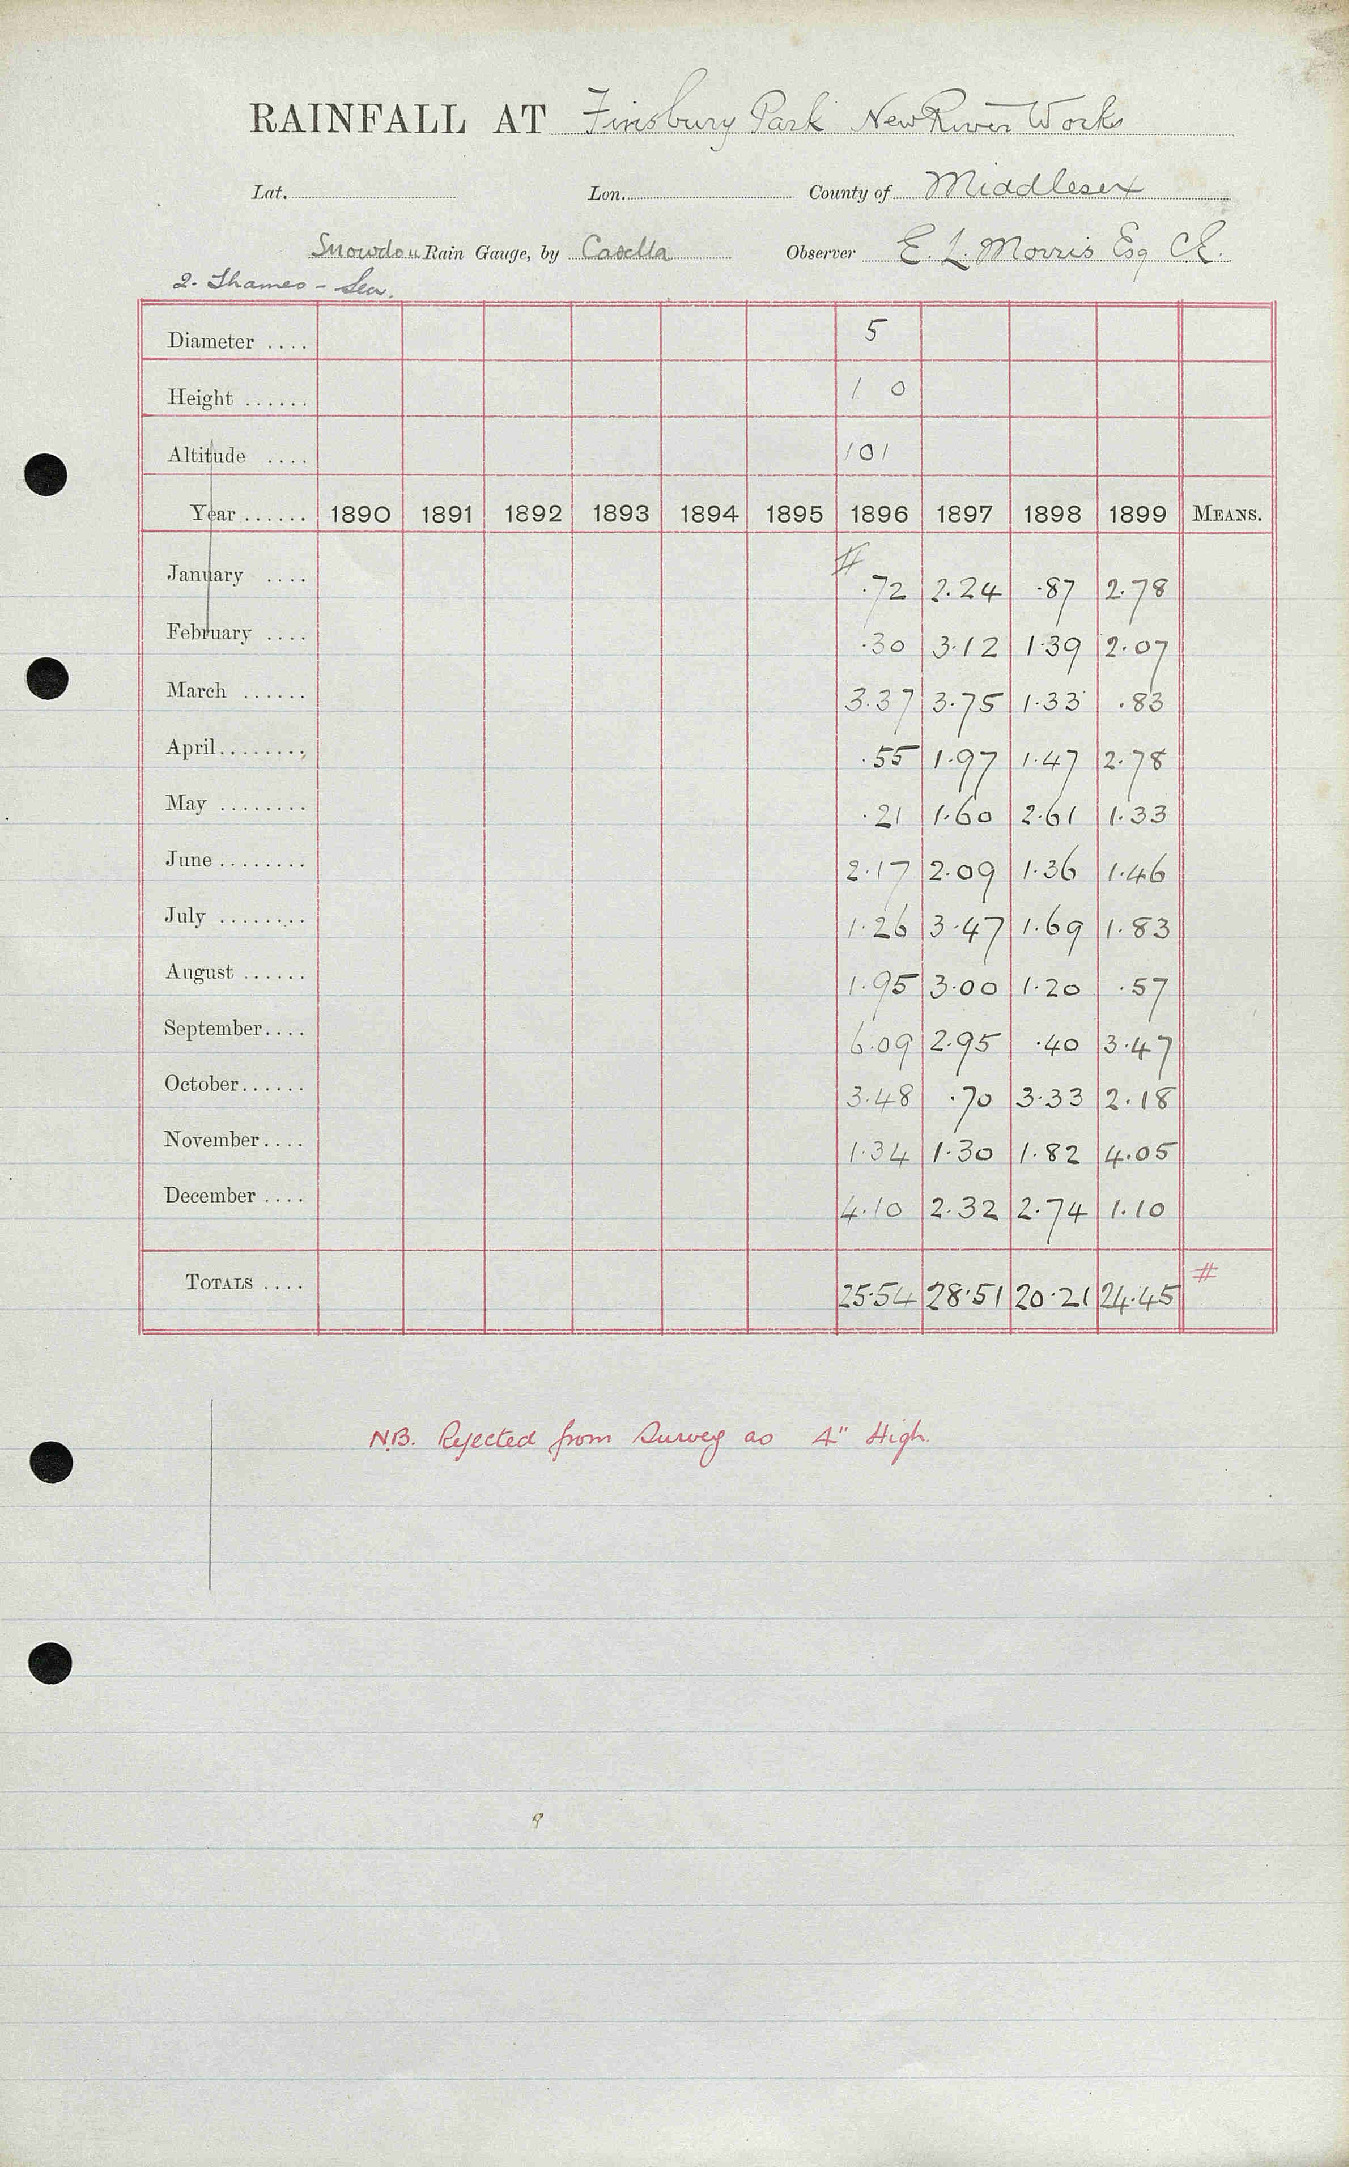 RAINFALL AT Finsbury Park New River Works
Lat. Lon. County of Middlesex
Snowdon Rain Gauge, by Casella Observer E. L. Morris Esq C.E.
2. Thames - Lea.
Diameter .... 5
Height ...... 1 0
Altitude .... 101
Year ...... 1890 1891 1892 1893 1894 1895 1896 1897 1898 1899 MEANS.
#
January .... .72 2.24 .87 2.78
February .... .30 3.12 1.39 2.07
March ...... 3.37 3.75 1.33 .83
April ........ .55 1.97 1.47 2.78
May ........ .21 1.60 2.61 1.33
June ........ 2.17 2.09 1.36 1.46
July ........ 1.26 3.47 1.69 1.83
August ...... 1.95 3.00 1.20 .57
September .... 6.09 2.95 .40 3.47
October ...... 3.48 .70 3.33 2.18
November .... 1.34 1.30 1.82 4.05
December .... 4.10 2.32 2.74 1.10
TOTALS .... 25.54 28.51 20.21 24.45 #
N.B. Rejected from Survey as 4" High.